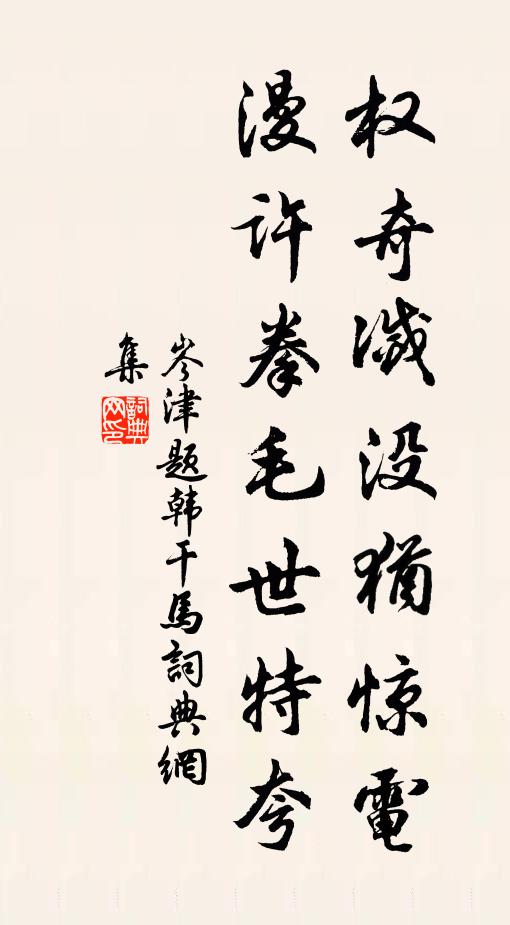 权奇灭没犹惊電
漫许拳毛世特夸
岑津题韩干馬詞典網
集
詞典网印